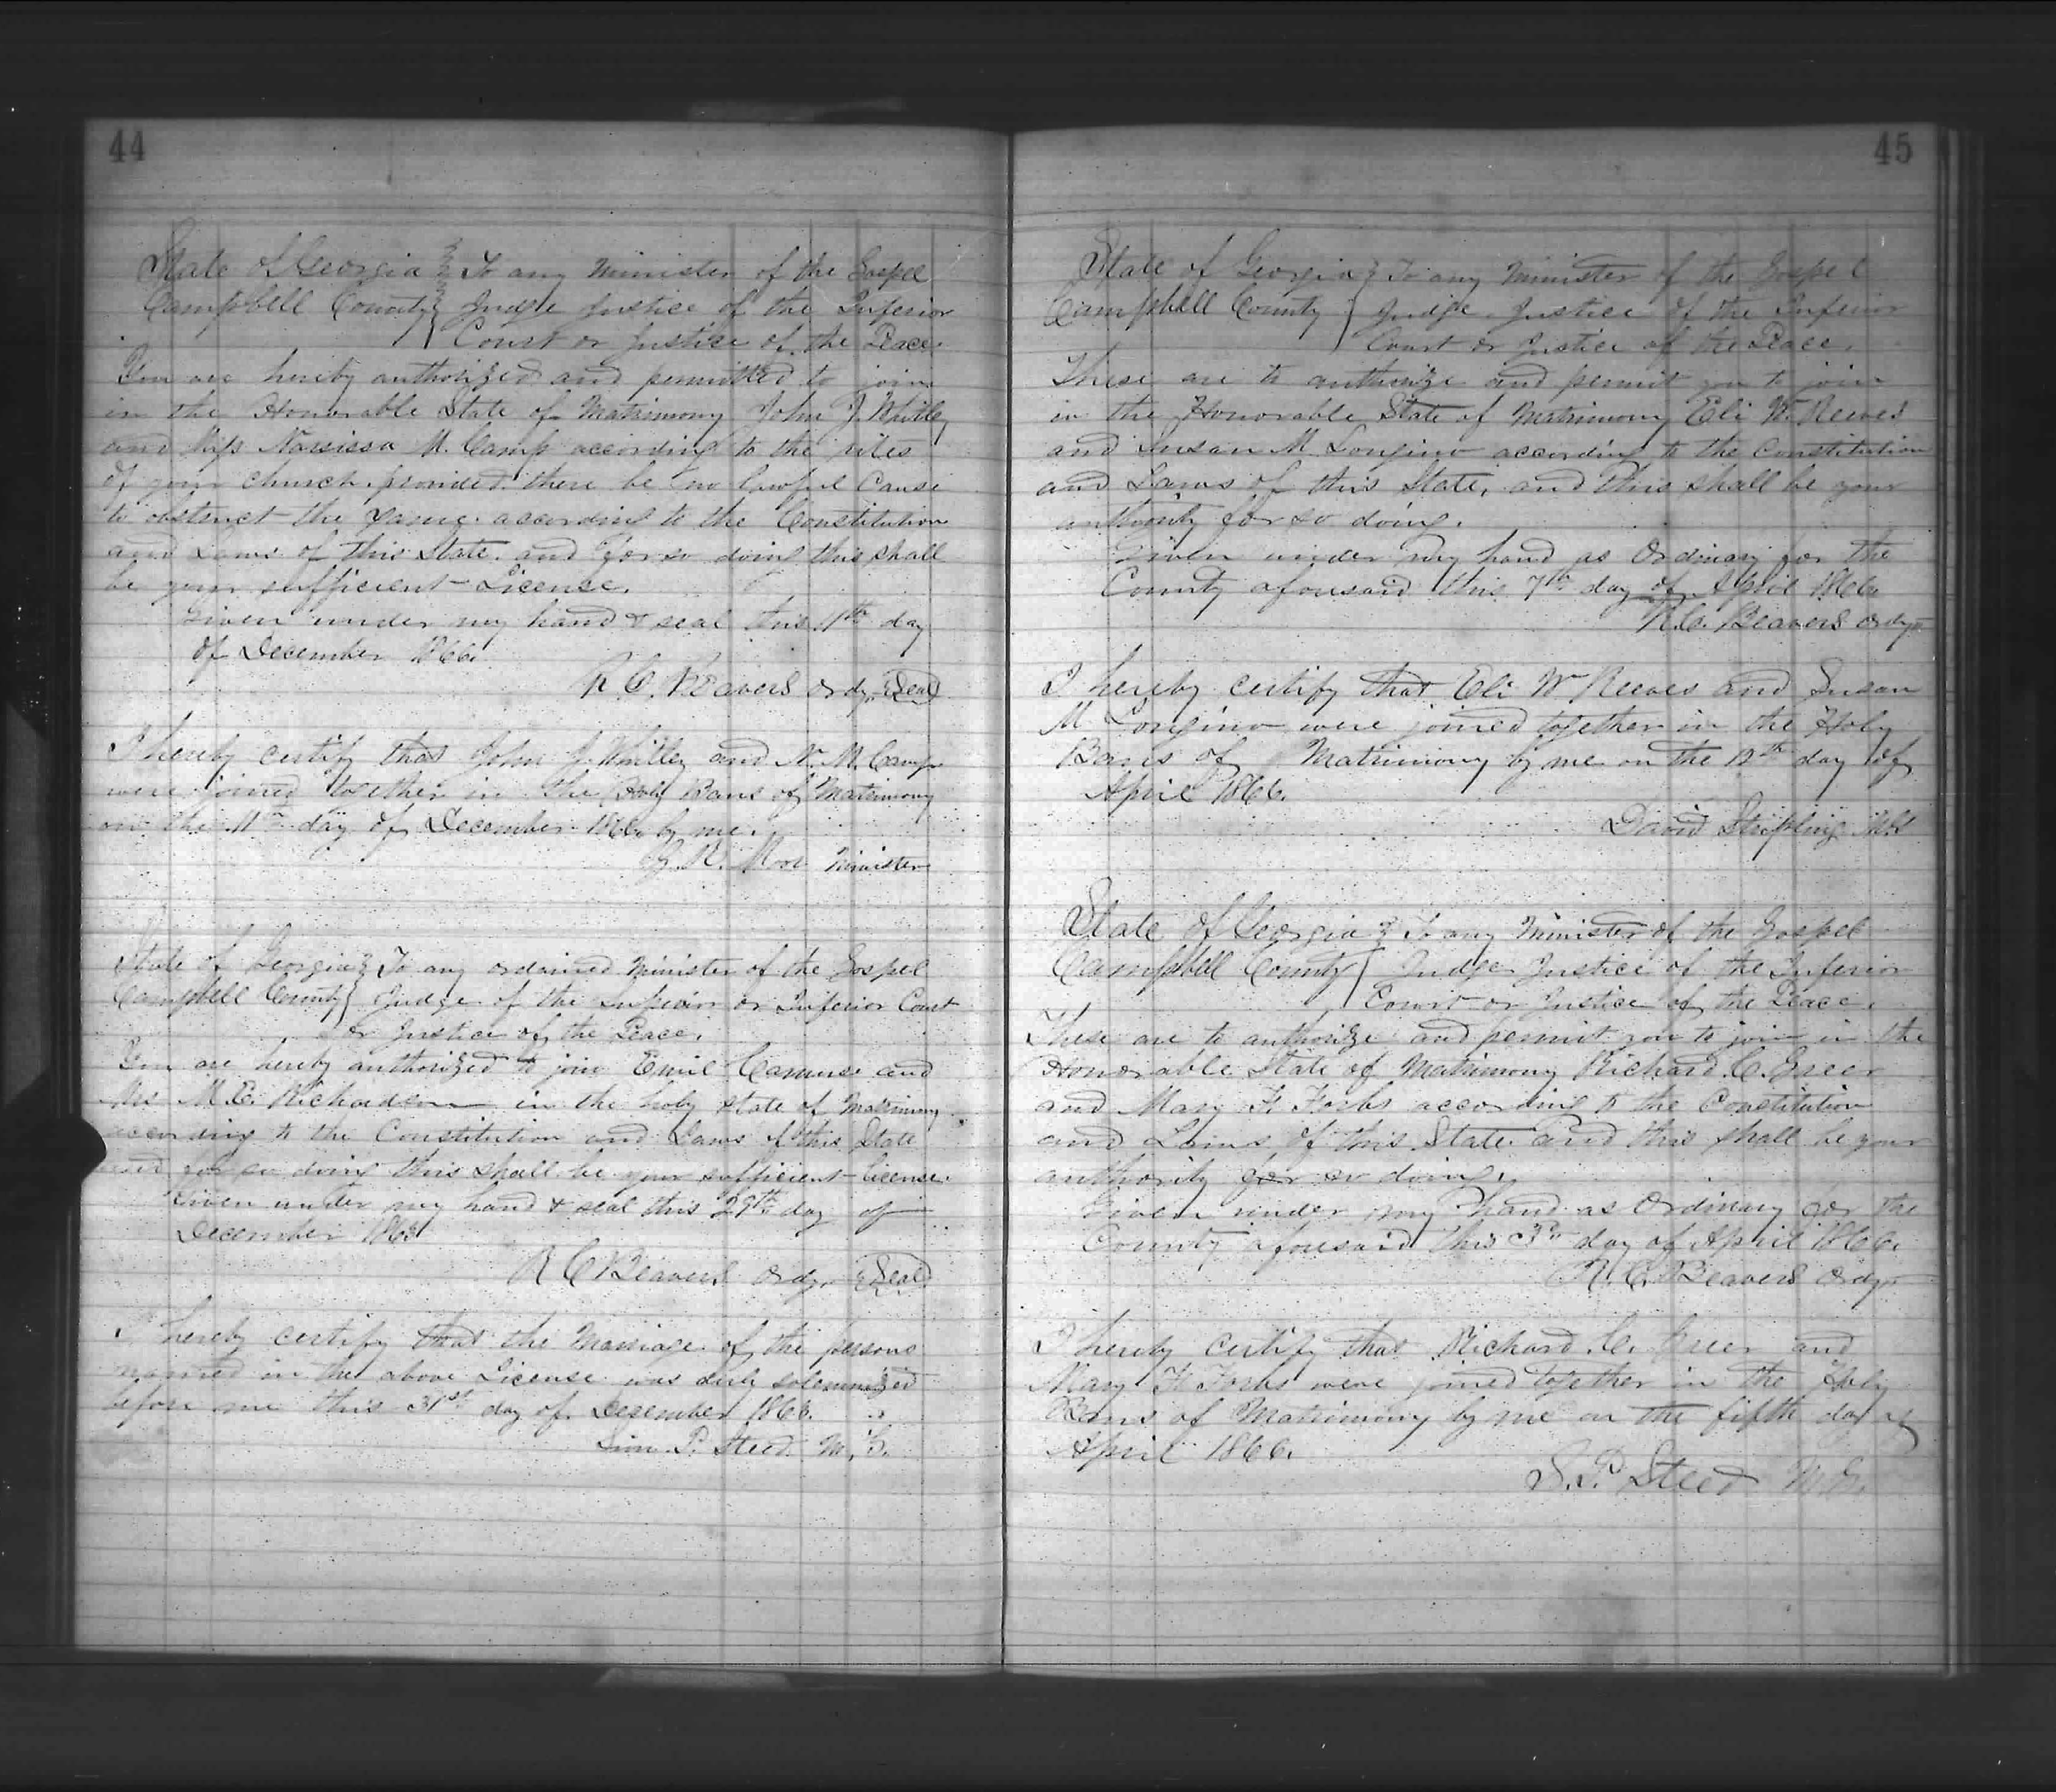 44
State of Georgia } To any Minister of the Gospel
Campbell County } Judge Justice of the Inferior
Court or Justice of the Peace.
You are hereby authorized and permitted to join
in the Honorable State of Matrimony John J. Whitley
and Miss Narsissa M. Camp according to the rites
of your church provided there be no lawful Cause
to obstruct the same according to the Constitution
and Laws of this State and for so doing this shall
be your sufficient License.
Given under my hand & seal this 11th day
of December 1866.
R. C. Beavers Ordy. Seal
I hereby certify that John J. Whitley and N. M. Camp
were joined together in the Holy Bans of Matrimony
on the 11th day of December 1866 by me.
R. Moor Minister
State of Georgia } To any ordained Minister of the Gospel
Campbell County } Judge of the Superior or Inferior Court
or Justice of the Peace.
You are hereby authorized to join Emil and
M. E. Richardson in the holy state of Matrimony
according to the Constitution and Laws of this State
and for so doing this shall be your sufficient License.
Given under my hand & seal this 29th day of
December
R C Beavers Ordy. Seal
I hereby certify that the Marriage of the persons
named in the above License was duly solemnized
before me this 31st day of December
Sim. P. Steed M. G.
45
State of Georgia } To any Minister of the Gospel
Campbell County } Judge Justice of the Inferior
Court or Justice of the Peace.
These are to authorize and permit you to join
in the Honorable State of Matrimony Eli W. Reeves
and Susan M Longino according to the Constitution
and Laws of this State, and this shall be your
authority for so doing.
Given under my hand as Ordinary for the
County aforesaid this 7th day of April 1866
R. C. Beavers Ordy.
I hereby certify that Eli W Reeves and Susan
M Longino were joined together in the Holy
Bans of Matrimony by me on the 12th day of
April 1866.
David Stripling MG
State of Georgia } To any Minister of the Gospel
Campbell County } Judge Justice of the Inferior
Court or Justice of the Peace.
These are to authorize and permit you to join in the
Honorable State of Matrimony Richard C. Greer
and Mary F. Forbs according to the Constitution
and Laws of this State and this shall be your
authority for so doing.
Given under my hand as Ordinary for the
County aforesaid this 3rd day of April 1866.
R. C. Beavers Ordy.
I hereby certify that Richard C. Greer and
Mary F. Forbs were joined together in the Holy
Bans of Matrimony by me on the fifth day of
April 1866.
S. P. Steed M. G.